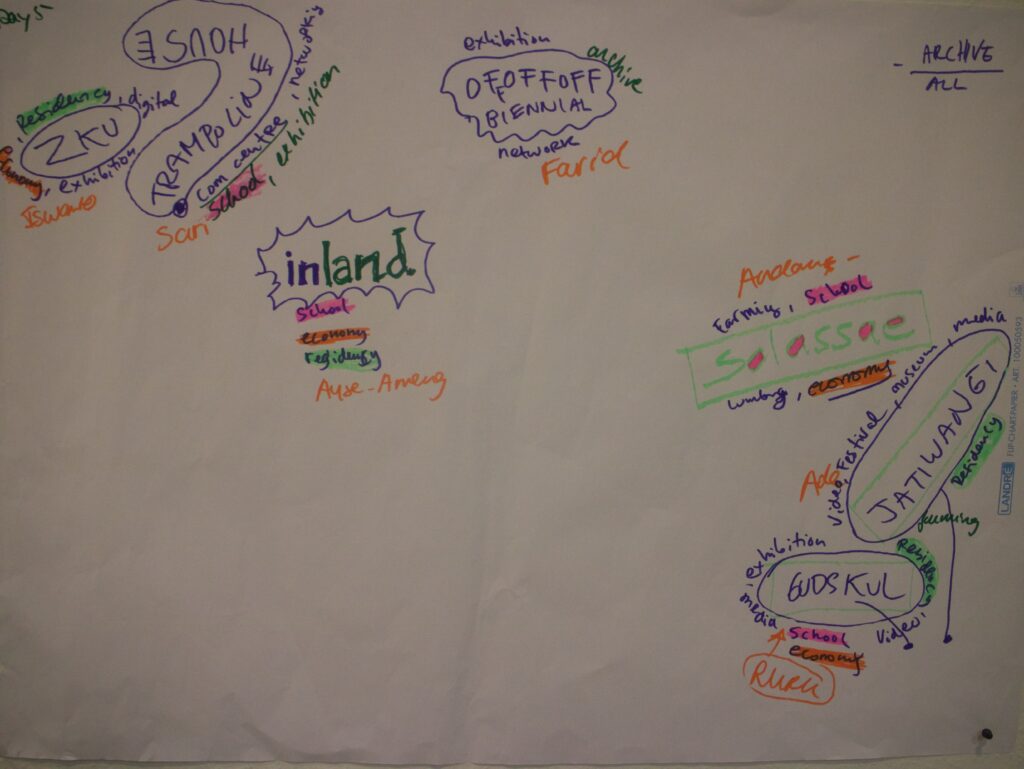 Days
TRAMPOLINE
HOUSE
com centre, networking
School, exhibition
Sari
Residency, digital
ZKU
exhibition
Iswanto
exhibition
archive
OFFOFFOFF
BIENNIAL
network
Farid
- ARCHIVE
ALL
inland.
School
economy
residency
Ayse-Ameng
Farming, School
Solassae
economy
media
museum
Festival
Video
JATIWANGI
Residency
farming
Ade
exhibition
media
GUDSKUL
Residency
Video
School
economy
RURU
LANDRÉ FLIP-CHART-PAPIER • ART. 100050593